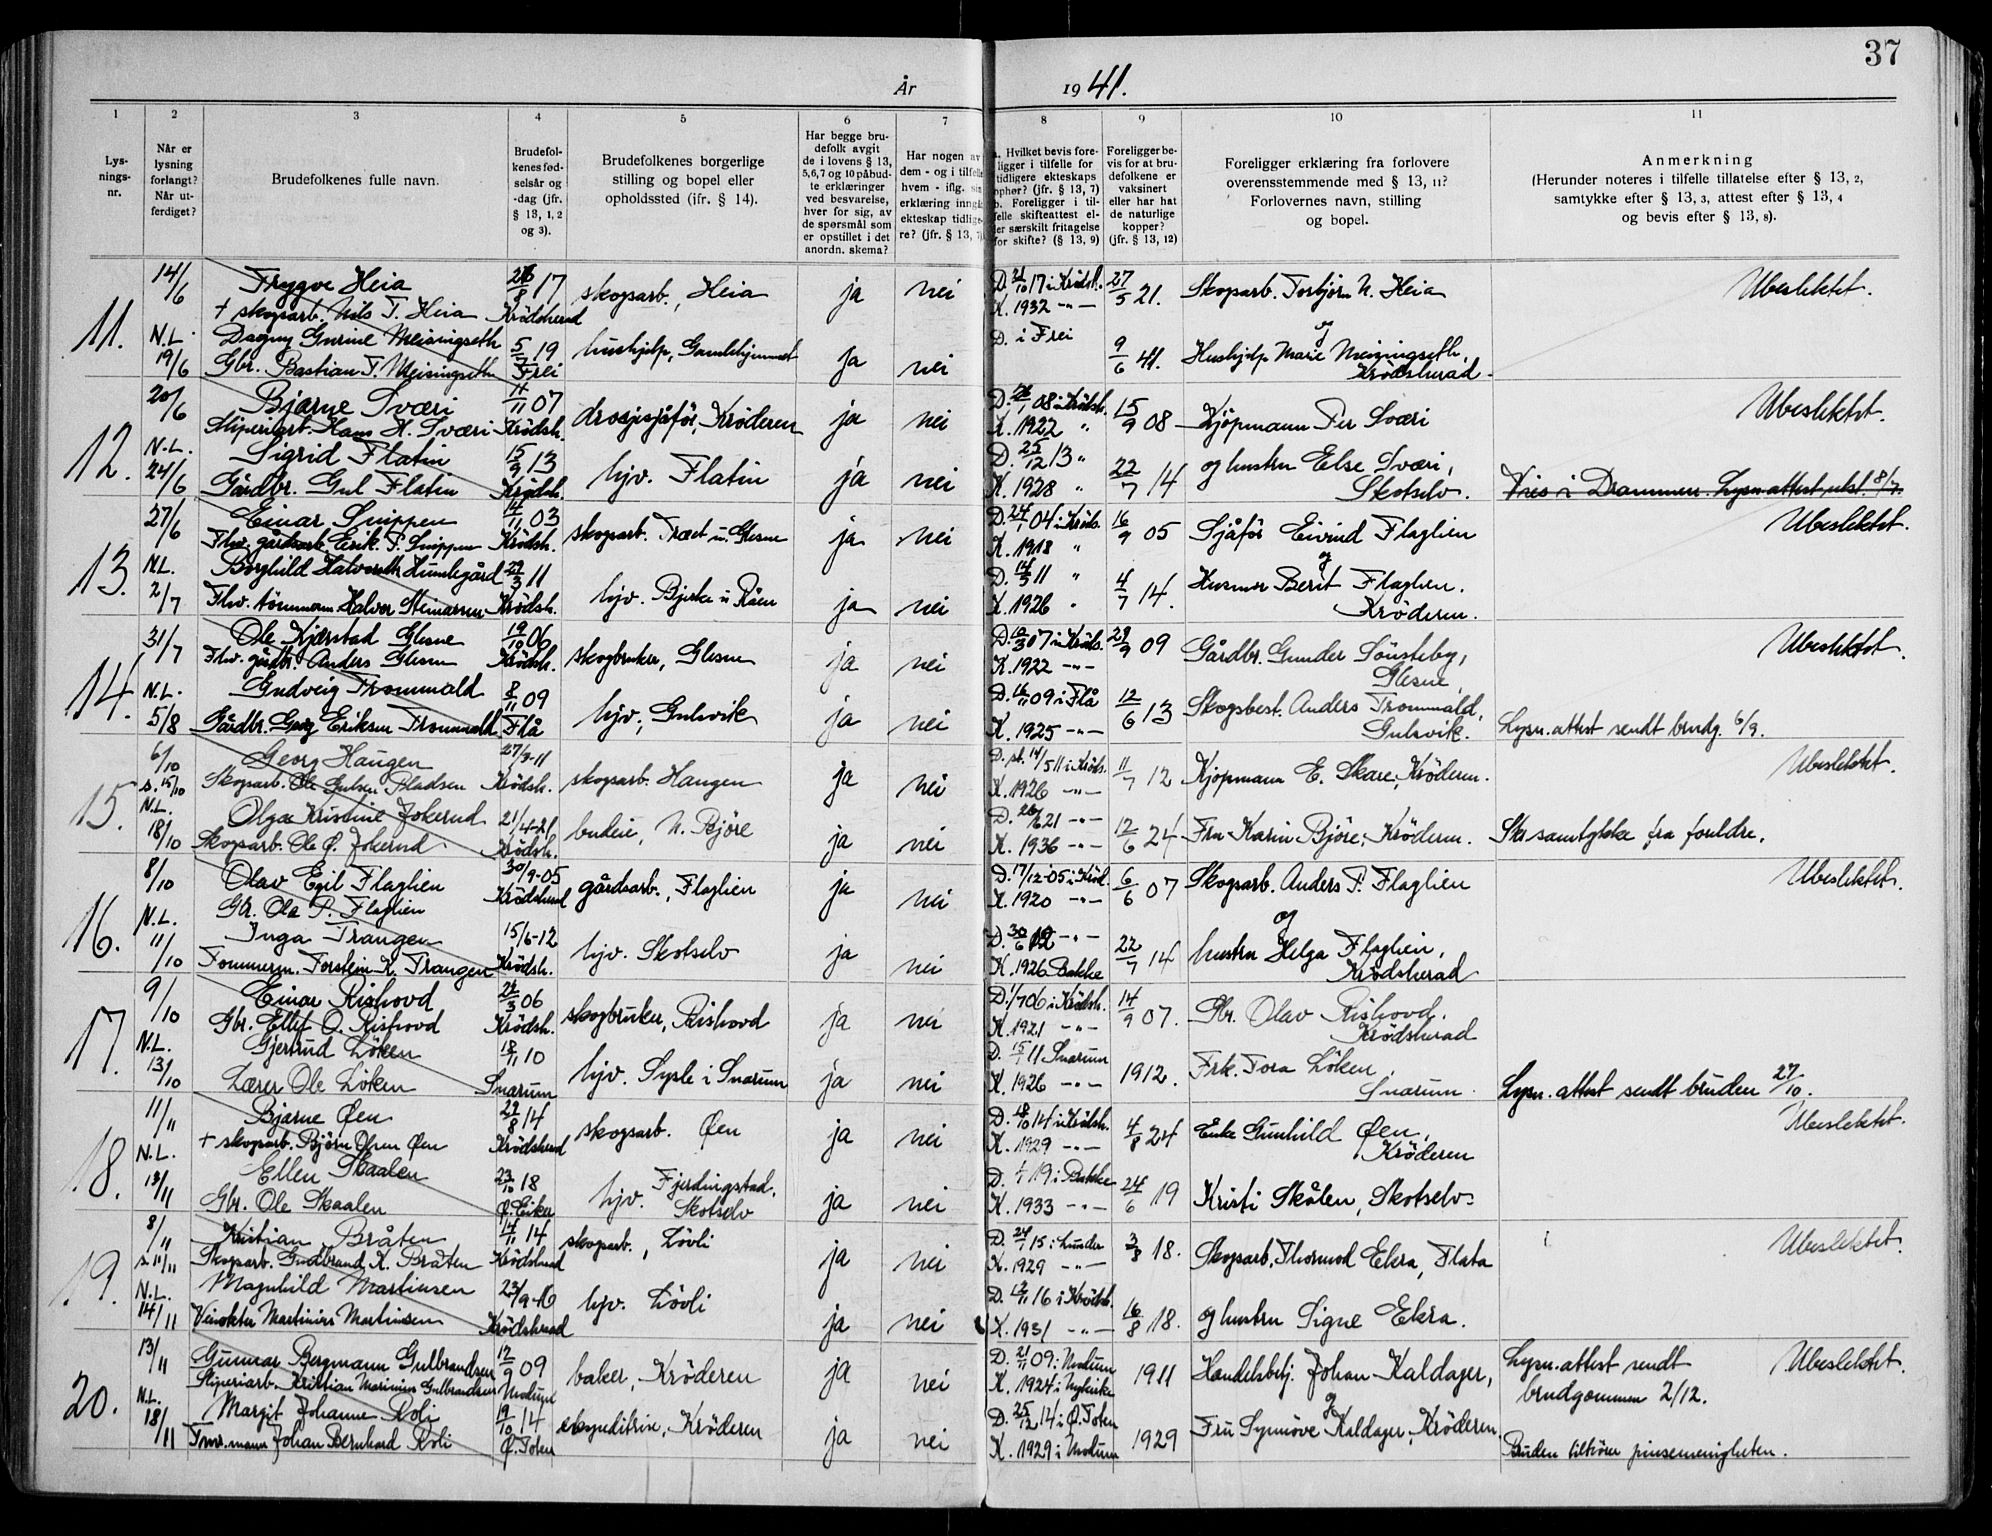 37
År 1941.
1
2
3
4
5
6
7
8
9
10
11
Lys-
nings-
nr.
Når er
lysning
forlangt?
Når ut-
ferdiget?
Brudefolkenes fulle navn.
Brudefol-
kenes fød-
selsår og
-dag (jfr.
§ 13, 1, 2
og 3).
Brudefolkenes borgerlige
stilling og bopel eller
opholdssted (ifr. § 14).
Har begge bru-
defolk avgit
de i lovens § 13,
5,6,7 og 10 påbud-
te erklæringer
ved besvarelse,
hver for sig, av
de spørsmål som
er opstillet i det
anordn. skema?
Har nogen av
dem - og i tilfelle
hvem - iflg. sin
erklæring inngå
ekteskap tidlige-
re? (jfr. § 13, 7)
a. Hvilket bevis fore-
ligger i tilfelle for
tidligere ekteskaps
ophør? (jfr. § 13, 7)
b. Foreligger i til-
felle skifteattest el-
ler særskilt fritagelse
for skifte? (§ 13, 9)
Foreligger be-
vis for at bru-
defolkene er
vaksinert
eller har hat
de naturlige
kopper?
(jfr. § 13, 12)
Foreligger erklæring fra forlovere
overensstemmende med § 13, 11?
Forlovernes navn, stilling
og bopel.
Anmerkning
(Herunder noteres i tilfelle tillatelse efter § 13, 2,
samtykke efter § 13, 3, attest efter § 13, 4
og bevis efter § 13, 8).
11. 14/6 Trygve Heia 8 17 skogsarb., Heia ja nei D. 21/10 17 i Krødsh. 27/5 21. Skogarb. Torbjørn N. Heia Ubeslektet.
+ skogsarb. Nils T. Heia Krødsherad K. 1932 -"-
N.L. Dagny Gurine Meisingseth 5/7 19 hushjelp, Gamlehjemmet ja nei D. i Frei 9/6 41. og Hushjelp Marie Meisingseth,
19/6 Gbr. Bastian T. Meisingseth Frei Krødsherad.
12. 20/6 Bjarne Sværi 11/11 07 drosjesjåfør, Krøderen ja nei D. 26/1 08 i Krødsh. 15/9 08 Kjøpmann Per Sværi Ubeslektet.
Sliperiarb. Hans H. Sværi Krødsh. K. 1922 "
N.L. Sigrid Flatin 15/9 13 hjv. Flatin ja nei D. 25/12 13 " 22/7 14 og hustru Else Sværi,
24/6 Gårdbr. Gul Flatin Krødsh. K. 1928 " Skotselv. Vies i Drammen. Lysn.attest utst. 8/7.
13. 27/6 Einar Snippen 14/11 03 skogsarb. Træet u. Glesne ja nei D. 24/1 04 i Krøds. 16/9 05 Sjåfør Eivind Flaglien Ubeslektet.
Fhv. gårdsarb. Erik P. Snippen Krødsh. K. 1918 "
N.L. Borghild Halvorseth Humlegård 29/3 11 hjv. Bjerke u Råen ja nei D. 14/5 11 " 4/7 14. og Husmor Berit Flaglien.
2/7 Fhv. tømmerm. Halvor Steinarsen Krødsh. K. 1926 " Krøderen.
14. 31/7 Ole Kjærstad Glesne 19/10 06 skogbruker, Glesne ja nei D. 10/3 07 i Krøds. 29/9 09 Gårdbr. Gunder Sønsteby, Ubeslektet.
Fhv. gårdbr. Anders Glesne Krødsh. K. 1922 -"- Glesne
N.L. Gudveig Trommald 8/11 09 hjv., Gulsvik ja nei D. 16/11 09 i Flå 12/6 13 Skogsbest. Anders Trommald,
5/8 Gårdbr. Georg Eriksen Trommald Flå K. 1925 -"- Gulsvik. Lysn.attest sendt brudg. 6/9.
15. 6/10 Georg Haugen 27/3-11 skogsarb. Haugen ja nei D. st. 14/5 11 i Krøds. 11/7 12 Kjøpmann E. Skare, Krøderen. Ubeslektet.
s. 15/10 Skogsarb. Ole Gulsen Pladsen Krødsh. K. 1926 -"-
N.L. Olga Kristine Jokerud 21/4-21 budeie, N. Bjøre ja nei D. 26/6 21 -"- 12/6 24 Fru Karin Bjøre, Krøderen. Skr. samtykke fra foreldre.
18/10 Skogsarb. Ole O. Jokerud Krødsh. K. 1936 -"-
16. 8/10 Olav Egil Flaglien 30/9-05 gårdsarb., Flaglien ja nei D. 17/12-05 i Krød. 6/6 07 Skogsarb. Anders P. Flaglien Ubeslektet.
Gbr. Ole P. Flaglien Krødsherad K. 1920 -"-
N.L. Inga Trangen 15/6-12 hjv. Skotselv ja nei D. 30/6 12 -"- 22/7 14 og hustru Helga Flaglien,
11/10 Tømmerm. Torstein K. Trangen Krødsh. K. 1926 Bakke Krødsherad
17. 9/10 Einar Rishovd 3 06 skogbruker, Rishovd ja nei D. 1/7 06 i Krødsh. 14/9 07. Gbr. Olav Rishovd.
Gbr. Ellef O. Rishovd Krødsh. K. 1921 -"- Krødsherad
N.L. Gjertrud Løken 18/11 10 hjv. Sysle i Snarum ja nei D. 15/1 11 Snarum 1912. Frk. Tora Løken
13/10 Lærer Ole Løken Snarum K. 1926 -"- Snarum. Lysn. attest sendt bruden 27/10.
18. 11/11 Bjarne Øen 29/8 14 skogsarb. Øen ja nei D. 18/10 14 i Krødsh. 4/8 24 Enke Gunhild Øen, Ubeslektet.
+ skogsarb. Bjørn Olsen Øen Krødsherad K. 1929 -"- Krøderen
N.L. Ellen Skaalen 23/10 18 hjv. Fjerdingstad, ja nei D. 1/1 19 i Bakke 24/6 19 Kristi Skålen, Skotselv.
13/11 Gbr. Ole Skaalen Ø. Eiker Skotselv K. 1933 -"-
19. 8/11 Kristian Bråten 14/11 14 skogsarb., Løvli ja nei D. 24/1 15 i Lunder 3/8 18. Skogsarb. Thormod Ekra, Flata Ubeslektet.
s. 11/11 Skogsarb. Gudbrand K. Bråten Krødsherad K. 1929 -"-
N.L. Magnhild Martinsen 23/9-16 hjv. Løvli ja nei D. 12/11 16 i Krødsh. 16/8 18. og hustru Signe Ekra.
14/11 Veivokter Martinius Martinsen Krødsherad K. 1931 -"-
20. 13/11 Gunnar Bergmann Gulbrandsen 12/9 09 baker, Krøderen ja nei D. 21/11 09 i Modum 1911 Handelsbetj. Johan Kaldager, Lysn.attest sendt Ubeslektet.
Sliperiarb. Kristian Marinius Gulbrandsen Modum K. 1924 i Nykirke brudgommen 2/12.
N.L. Margit Johanne Roli 19/10 14 ekspeditrise, Krøderen ja nei D. 25/12 14 i Ø. Toten 1929 og Fru Synnøve Kaldager, Krøderen.
18/11 Tmr.mann Johan Bernhard Roli Ø. Toten K. 1929 i Modum Bruden tilhører pinsemenigheten.